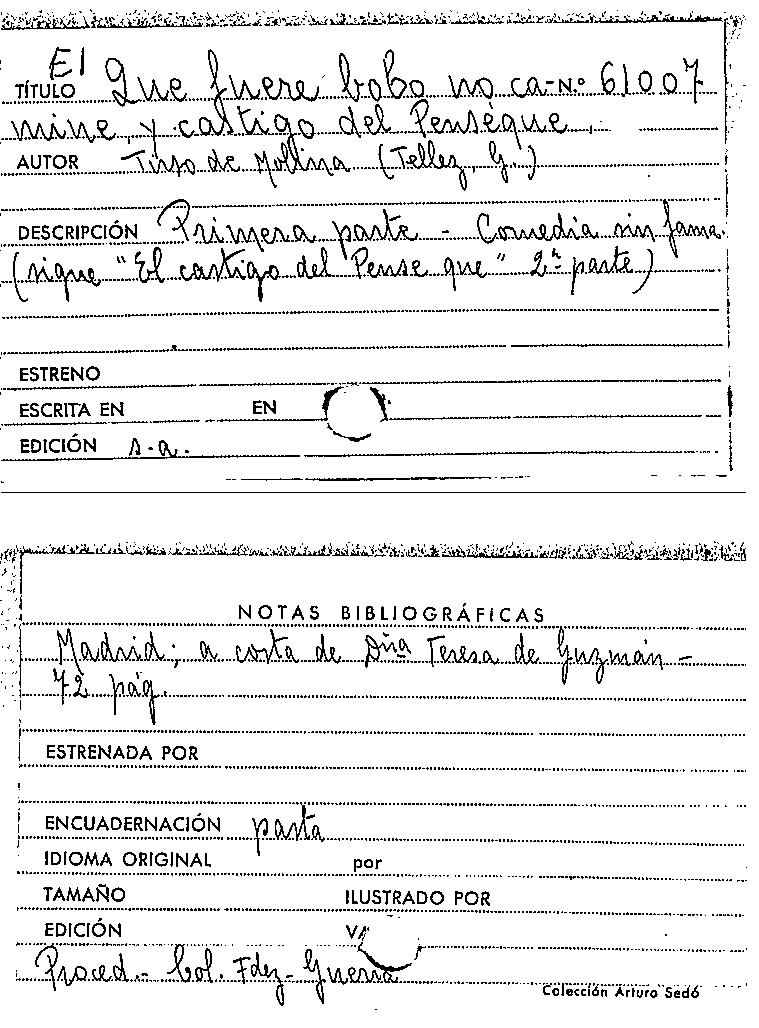 TÍTULO El Que fuere bobo no ca- N.º 61007
mine, y castigo del Penséque.
AUTOR Tirso de Mollina (Tellez, G.)
DESCRIPCIÓN Primera parte - Comedia sin fama.
(sigue "El castigo del Pense que" 2ª parte)
ESTRENO
ESCRITA EN EN
EDICIÓN s.a.
NOTAS BIBLIOGRÁFICAS
Madrid; a costa de Dña Teresa de Guzmán -
72 pág.
ESTRENADA POR
ENCUADERNACIÓN pasta
IDIOMA ORIGINAL por
TAMAÑO ILUSTRADO POR
EDICIÓN
Proced.- Col. Fdez-Guerra
Colección Arturo Sedó